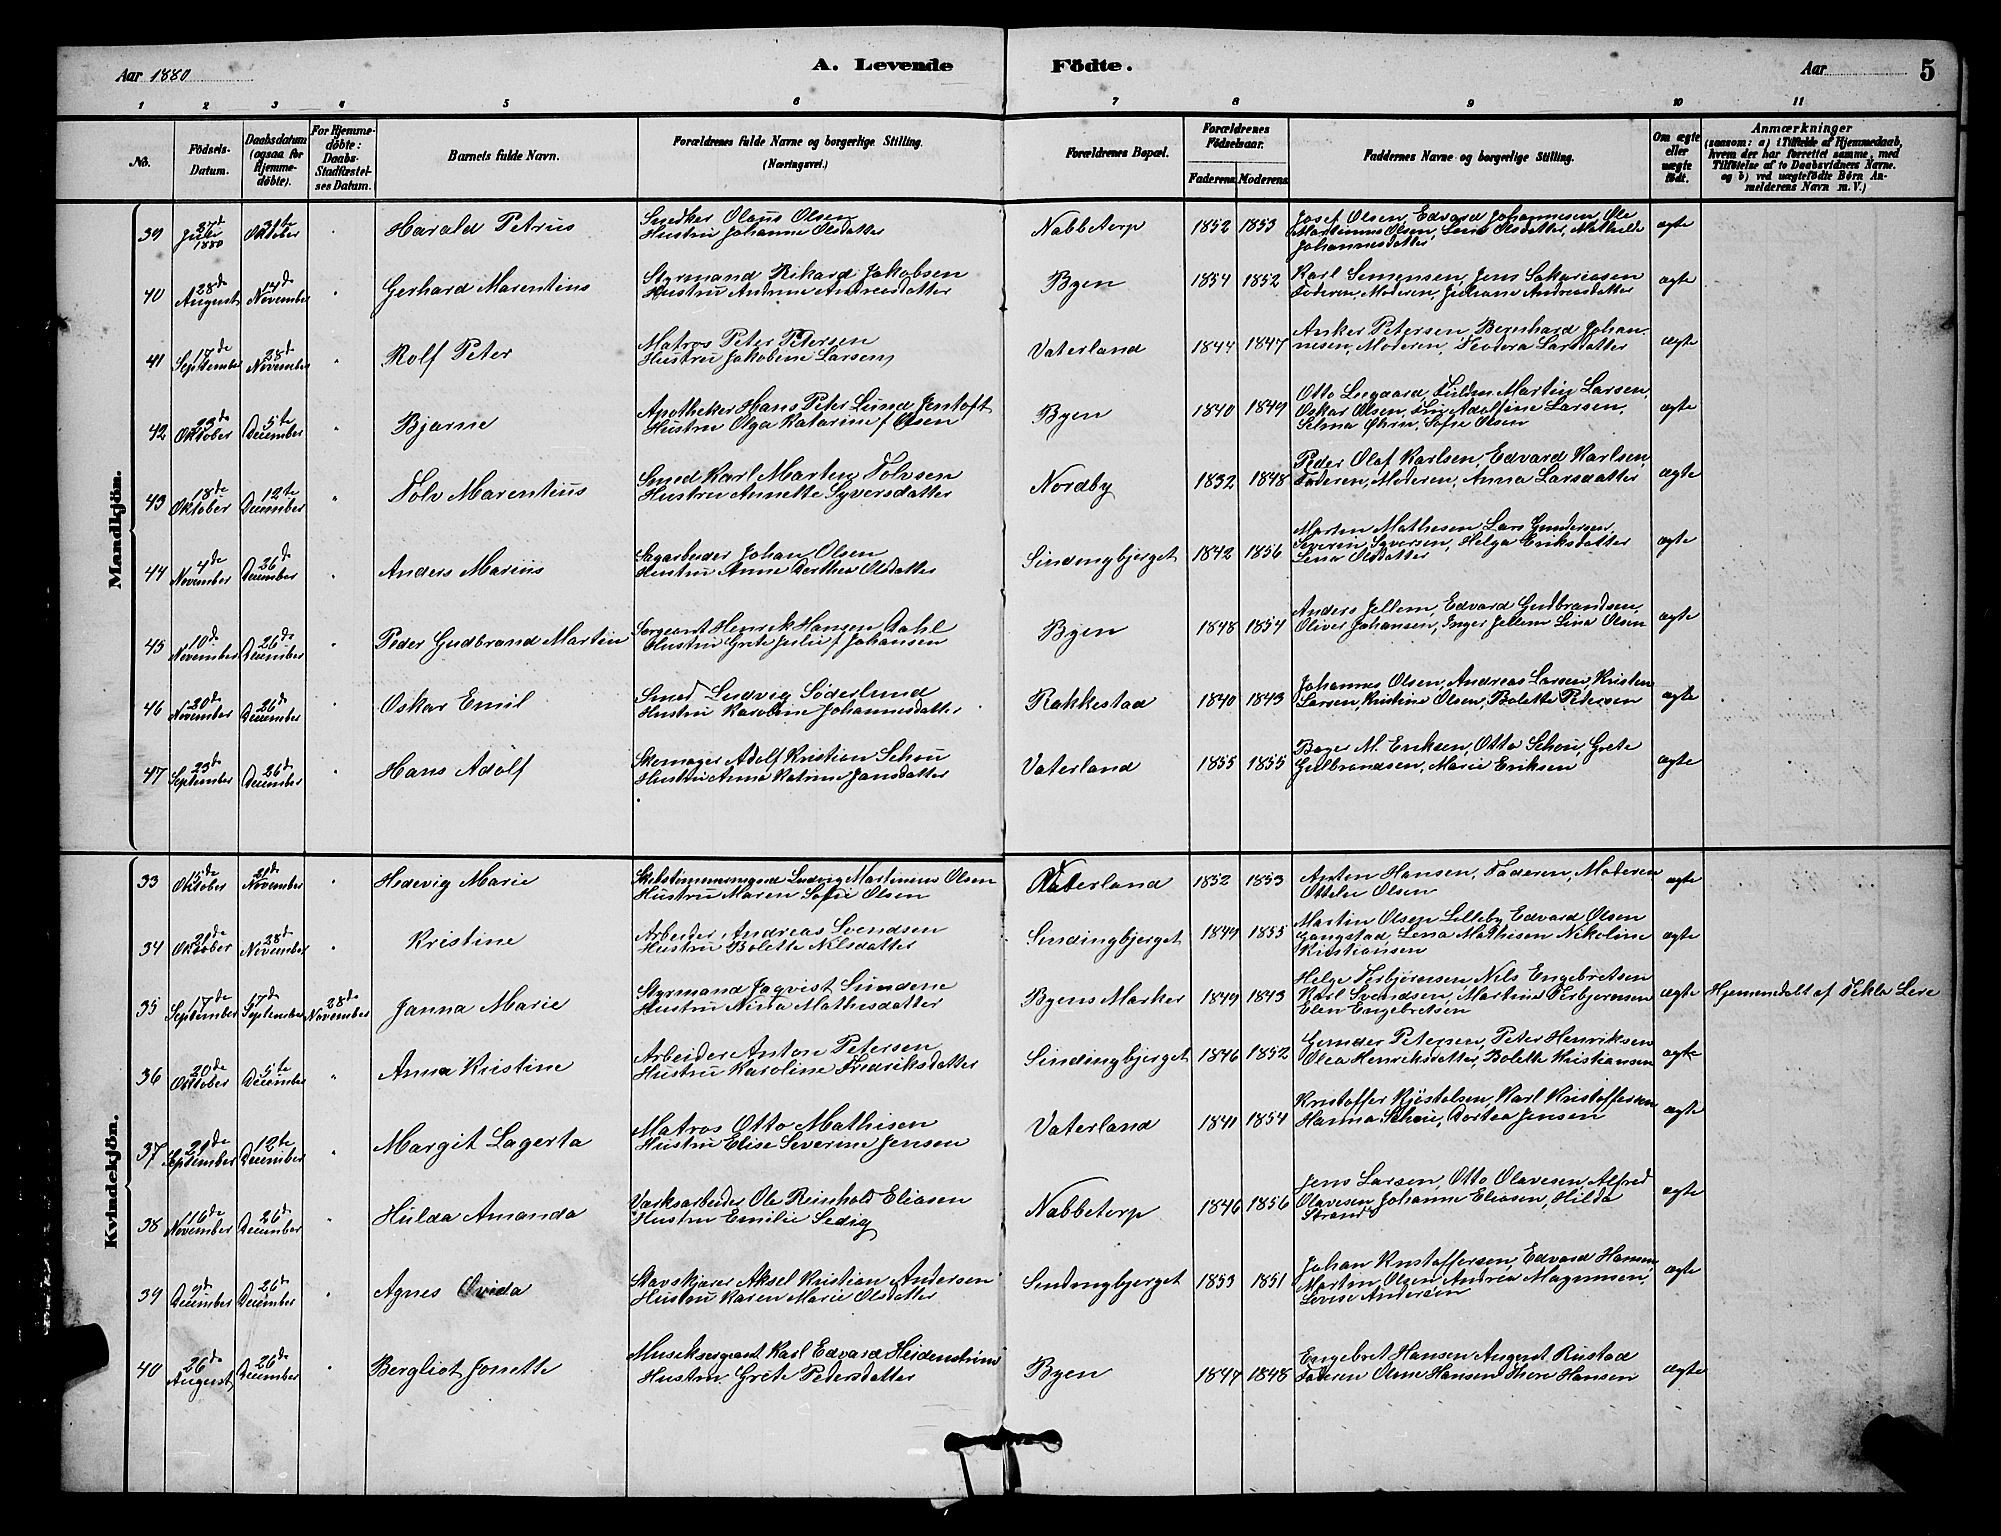 Aar 1880
A. Levende Födte.
Aar 5
1 2 3 4 5 6 7 8 9 10 11
No.
Födsels-Datum.
Daabsdatum (ogsaa for Hjemme-döbte).
For Hjemme-döbte: Daabs-Stadfæstel-ses Datum.
Barnets fulde Navn.
Forældrenes fulde Navne og borgerlige Stilling. (Næringsvei.)
Forældrenes Bopæl.
Forældrenes Födselsaar.
Faderens. Moderens.
Faddernes Navne og borgerlige Stilling.
Om ægte eller uægte födt.
Anmærkninger
(saasom: a) i Tilfælde af Hjemmedaab, hvem der har forrettet samme, med Tilföielse af to Daabsvidners Navne. og b) ved uægtefödte Börn An-melderens Navn m. V.)
Mandkjön.
39 Juli 1880 31te Oktober Harald Petrus Snedker Olaus Olsen Nabbetorp 1852 1853 Josef Olsen, Edvard Johannesen, Ole ægte
Hustru Johanne Olsdatter Martinius Olsen, Lina Olsdatter, Mathilde
Johannesdatter
40 28de August 14de November Gerhard Marentius Styrmand Rikard Jakobsen Byen 1854 1852 Karl Simensen, Jens Sakariasen ægte
Hustru Andrine Andreasdatter Faderen, Moderen, Juliane Andreasdatter
41 18de September 28de November Rolf Peter Matros Peter Petersen Vaterland 1844 1847 Anker Petersen, Bernhard Johan- ægte
Hustru Jakobine Larsen nesen, Moderen, Teodora Larsdatter
42 23de Oktober 5te December Bjarne Apotheker Hans Peter Lund Jentoft Byen 1840 1849 Otto Lugaard, Martin Larsen, ægte
Hustru Olga Katarine f. Olsen Oskar Olsen, Adolfine Larsen,
Selma Öhrn, Sofie Olsen
43 18de Oktober 12te December Tolv Marentius Smed Karl Martin Tolvsen Nordby 1832 1848 Peder Olaf Karlsen, Edvard Karlsen, ægte
Hustru Annette Syversdatter Faderen, Moderen, Anna Larsdatter
44 4de November 26de December Anders Marius Sagarbeider Johan Olsen Sindingbjerget 1842 1856 Martin Mathisen, Lars Gundersen, ægte
Hustru Anne Dorthea Olsdatter Severin Syversen, Helga Eriksdatter
Lina Olsdatter
45 10de November 26de December Peder Gudbrand Martin Sergeant Henrik Hansen Dahl Byen 1848 1854 Anders Jellem, Edvard Gudbrandsen, ægte
Hustru Grete Julie f. Johansen Oliver Johansen, Inger Jellem Lina Olsen
46 20de November 26de December Oskar Emil Smed Ludvig Söderlund Rakkestad 1840 1843 Johannes Olsen, Andreas Larsen, Kristen ægte
Hustru Karoline Johannesdatter Larsen, Kristine Olsen, Bolette Petersen
47 23de September 26de December Hans Adolf Skomager Adolf Kristian Schou Vaterland 1855 1855 M. Eriksen, Otto Schou, Grete ægte
Hustru Anna Katrine Jansdatter Gulbrandsen, Marie Eriksen
Kvindekjön.
33 15de Oktober 21de November Hedevig Marie Skibstimmermand Ludvig Martinius Olsen Vaterland 1852 1853 Anton Hansen, Faderen, Moderen ægte
Hustru Maren Sofie Olsen Ottelie Olsen
34 21de Oktober 28de November Kristine Arbeider Andreas Svendsen Sindingbjerget 1849 1855 Martin Olsen Lilleby Edvard Olsen ægte
Hustru Bolette Nilsdatter Langstad, Lena Mathisen Nikoline
Kristiansen
35 17de September 17de September 28de November Janna Marie Styrmand Jaqvist Sundene Byens Marker 1849 1843 Helge Terbjørensen Nils Engebretsen ægte Hjemmedøbt af Tekla Lie
Hustru Nista Mathisdatter Karl Svendsen, Martine Terbjørensen
Elen Engebretsen
36 20de Oktober 5te December Anna Kristine Arbeider Anton Petersen Sindingbjerget 1846 1852 Gunder Petersen, Peter Henriksen ægte
Hustru Karoline Fredriksdatter Olea Henriksdatter, Bolette Kristiansen
37 21de September 12te December Margit Lagerta Matros Otto Mathisen Vaterland 1841 1854 Kristoffer Kjøstelsen, Karl Kristoffersen ægte
Hustru Elise Severine Jensen Hanna Schou, Dortea Jensen
38 16de November 26de December Hulda Amanda Værksarbeider Ole Reinhold Eliasen Nabbetorp 1846 1856 Jens Larsen, Otto Olavesen, Alfred ægte
Hustru Emilie Sedig Olavesen, Johanne Eliasen, Hilda
Strand
39 9de December 26de December Agnes Ovida Stavskjærer Aksel Kristian Andersen Sindingbjerget 1853 1851 Johan Kristoffersen, Edvard Hansen ægte
Hustru Karen Marie Olsdatter Martin Olsen Andrea Magnusen,
Lovise Andersen
40 26de August 26de December Bergliot Jonette Musiksergeant Karl Edvard Heidenstrøm Byen 1844 1848 Engebret Hansen August Rustad ægte
Hustru Grete Pedersdatter Faderen Oline Hansen Thora Hansen